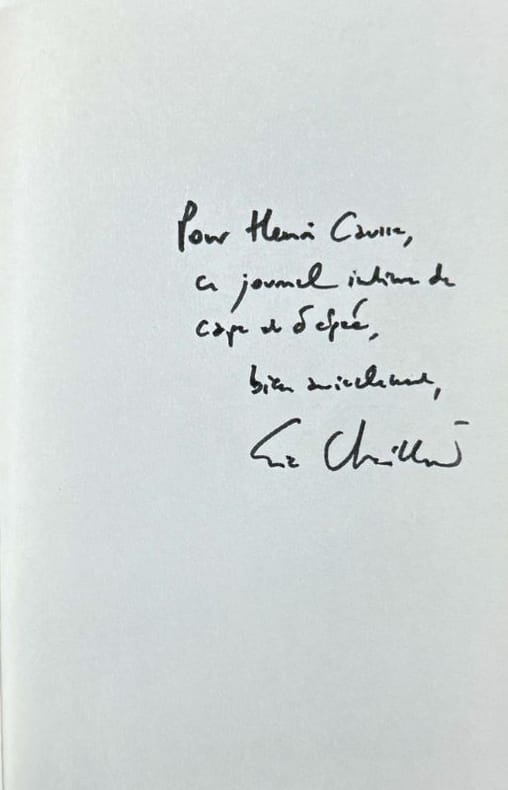 Pour Henri Causse,
ce journal intime de
cape et d'épée,
bien amicalement,
Eric Chevillard